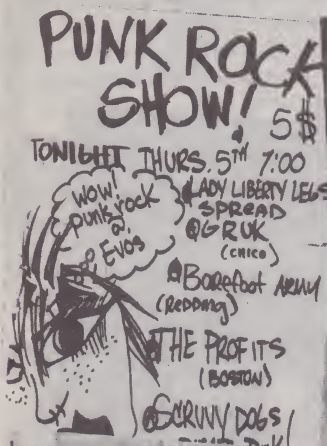 PUNK ROCK
SHOW!
5$
TONIGHT THURS. 5TH 7:00
WOW!
punk rock
@
EVOS
LADY LIBERTY LEGS
SPREAD
GRUK
(CHICO)
Barefoot ARMY
(Redding)
THE PROFITS
(BOSTON)
SCRUVY DOGS